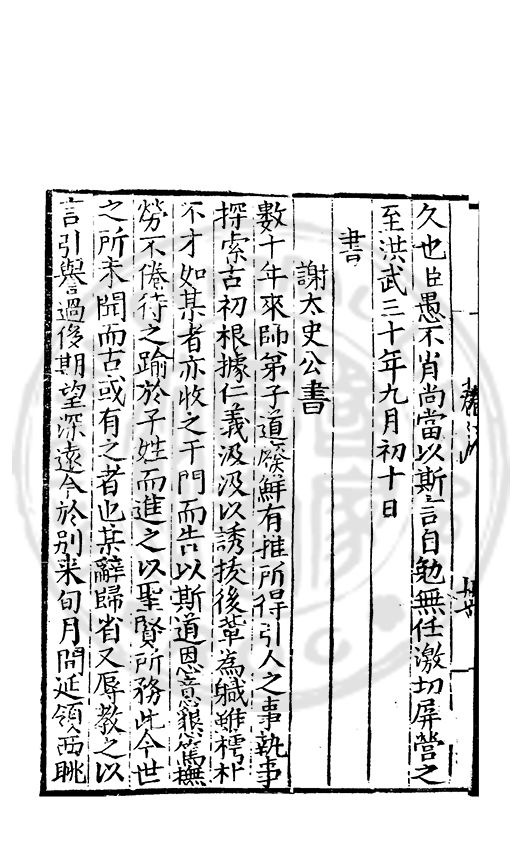 久也臣愚不肖尚當以斯言自勉無任激切屏營之
至洪武三十年九月初十日
書
謝太史公書
數十年來師弟子道廢鮮有推所得引人之事執事
探索古初根據仁義汲汲以誘掖後輩為職雖樗朴
不才如某者亦收之于門而告以斯道恩意狠篤撫
勞不倦待之踰於子姓而進之以聖賢所務此今世
之所未聞而古或有之者也某辭歸省又辱教之以
言引譽過後期望深遠今於别来旬月間延領西眺